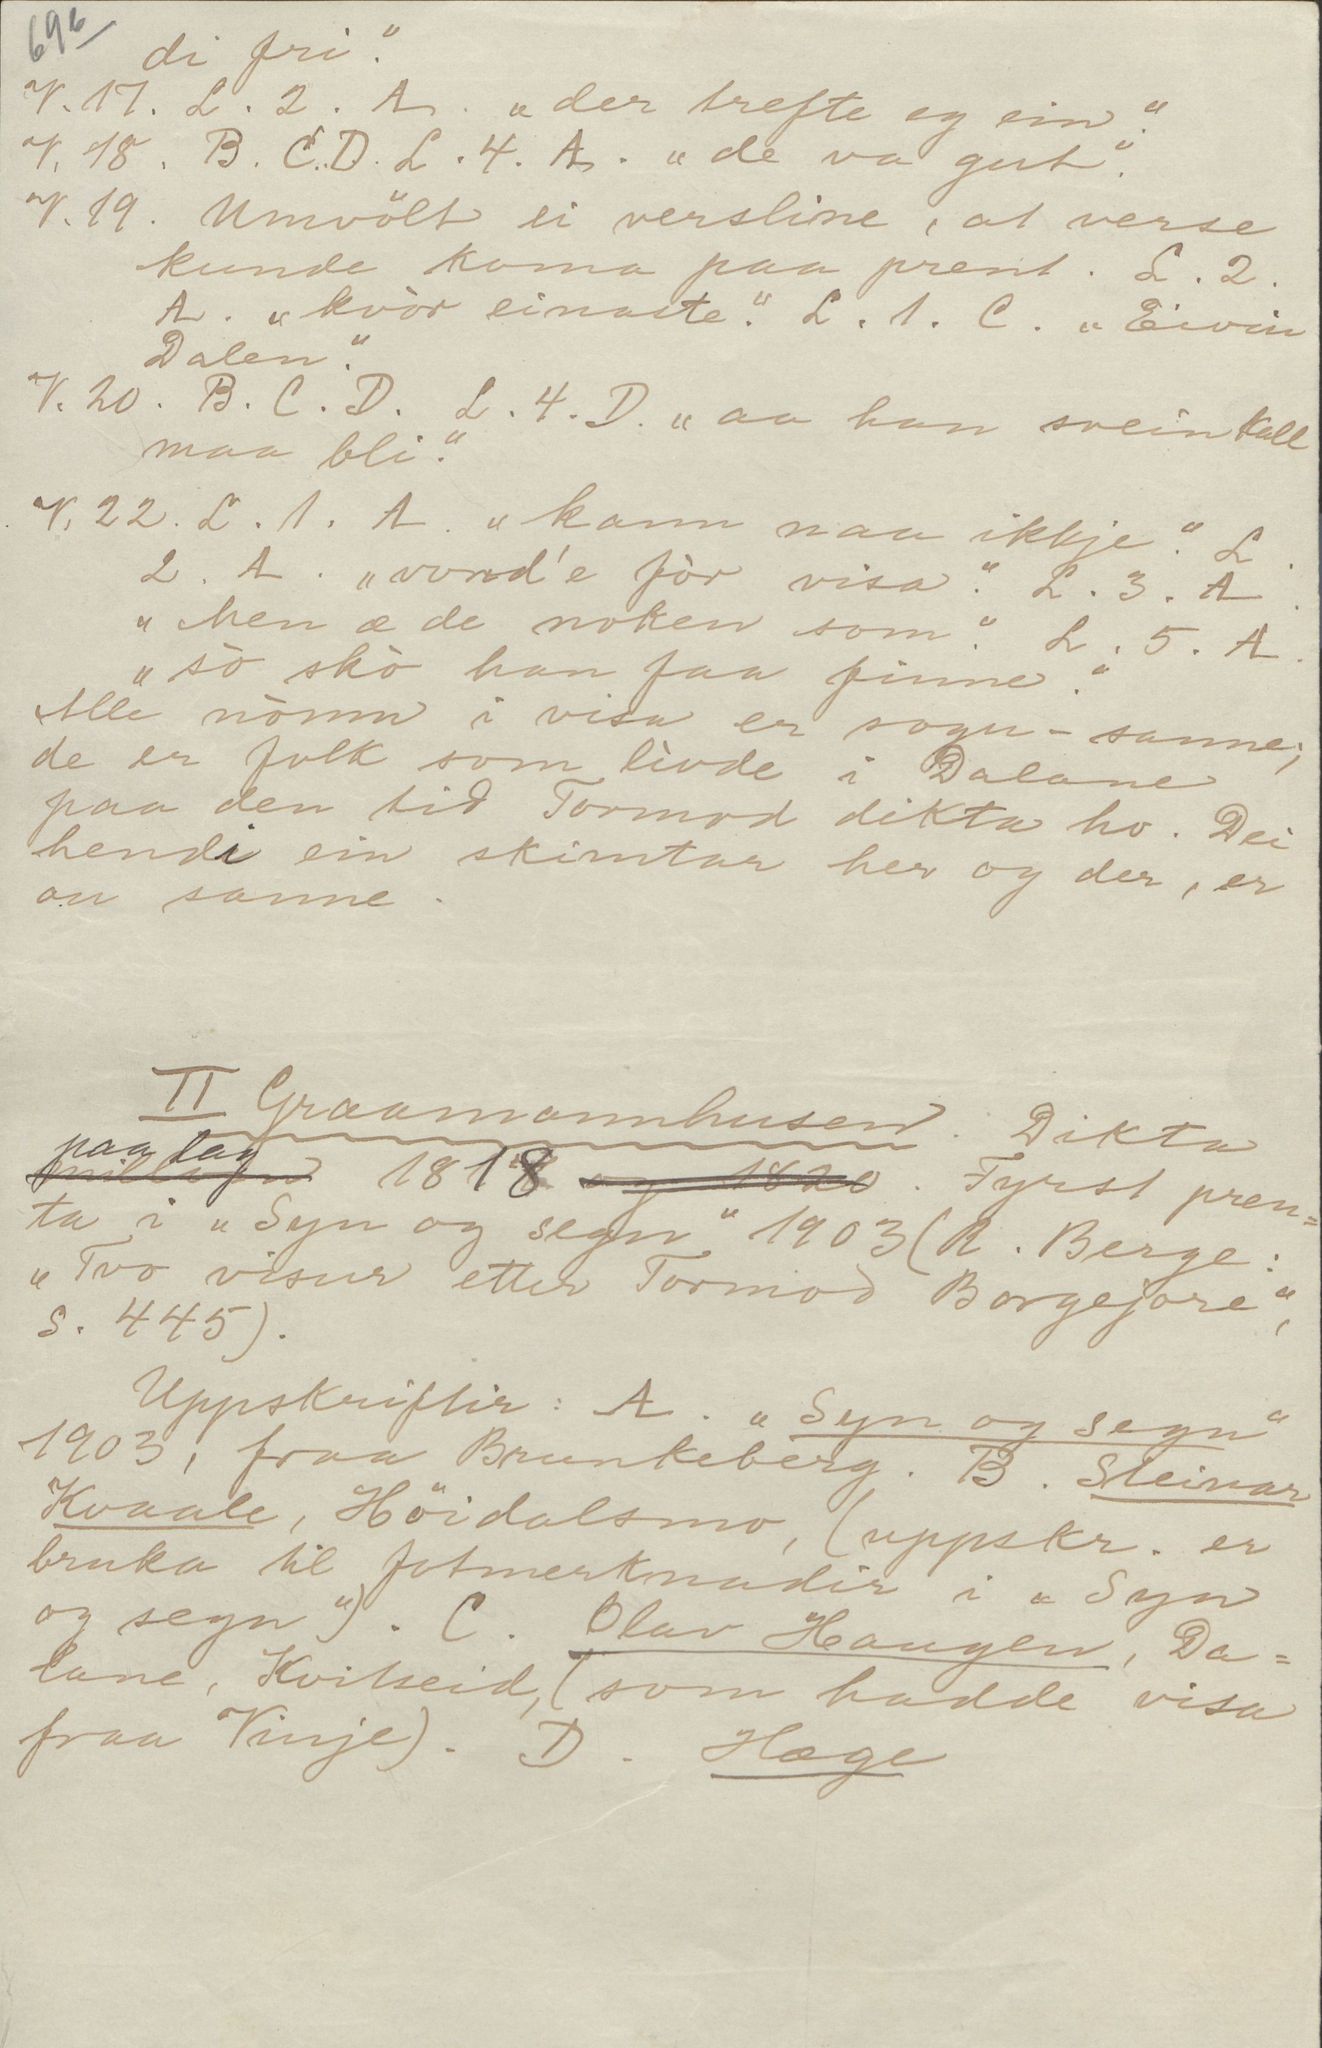 696
di fri".
V. 17. L. 2. A. „der trefte eg ein".
V. 18. B. C. D. L. 4. A. „de va gut".
V. 19. Umvölt ei versline, at verse
kunde koma paa prent. L. 2.
A. „kvòr einaste". L. 1. C. „Eivin
Dalen".
V. 20. B. C. D. L. 4. D. „aa han svein Kall
maa bli".
V. 22. L. 1. A. „kann naa ikkje". L.
2. A. „vond'e fòr visa". L. 3. A.
„Men æ de noken som". L. 5. A.
„sò skò han faa finne".
Alle nòmn i visa er sogu-sanne;
de er folk som livde i Dalane
paa den tid Tormod dikta ho. Dei
hendi ein skimtar her og der, er
au sanne.
II Graamannhusen. Dikta
paa lag
1818 og 1820. Fyrst pren=
ta i „Syn og segn" 1903 (R. Berge:
„Tvo visur etter Tormod Borgejore",
S. 445).
Uppskriftir: A. „Syn og segn"
1903, fraa Brunkeberg. B. Steinar
Kvaale, Höidalsmo, (uppskr. er
bruka til fotmerknadir i „Syn
og segn"). C. Olav Haugen, Da=
lane, Kvitseid, (som hadde visa
fraa Vinje). D. Hæge